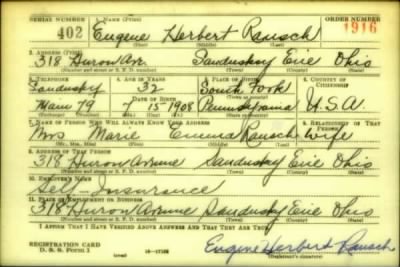 SERIAL NUMBER 1. NAME (Print) ORDER NUMBER
402 Eugene Herbert Rausch 1916
(First) (Middle) (Last)
2. ADDRESS (Print)
318 Huron Ave. Sandusky Erie Ohio
(Number and street or R. F. D. number) (Town) (County) (State)
3. TELEPHONE 4. AGE IN YEARS 5. PLACE OF BIRTH 6. COUNTRY OF CITIZENSHIP
Sandusky 32 South Fork
DATE OF BIRTH
Main 79 7 15 1908 Pennsylvania U.S.A.
(Exchange) (Number) (Mo.) (Day) (Yr.) (State or country)
7. NAME OF PERSON WHO WILL ALWAYS KNOW YOUR ADDRESS 8. RELATIONSHIP OF THAT PERSON
Mrs Marie Emma Rausch Wife
(Mr., Mrs., Miss) (First) (Middle) (Last)
9. ADDRESS OF THAT PERSON
318 Huron Avenue Sandusky Erie Ohio
(Number and street or R. F. D. number) (Town) (County) (State)
10. EMPLOYER'S NAME
Self-Insurance
11. PLACE OF EMPLOYMENT OR BUSINESS
318 Huron Avenue Sandusky Erie Ohio
(Number and street or R. F. D. number) (Town) (County) (State)
I AFFIRM THAT I HAVE VERIFIED ABOVE ANSWERS AND THAT THEY ARE TRUE.
REGISTRATION CARD
D. S. S. Form 1 Eugene Herbert Rausch
(Registrant's signature)